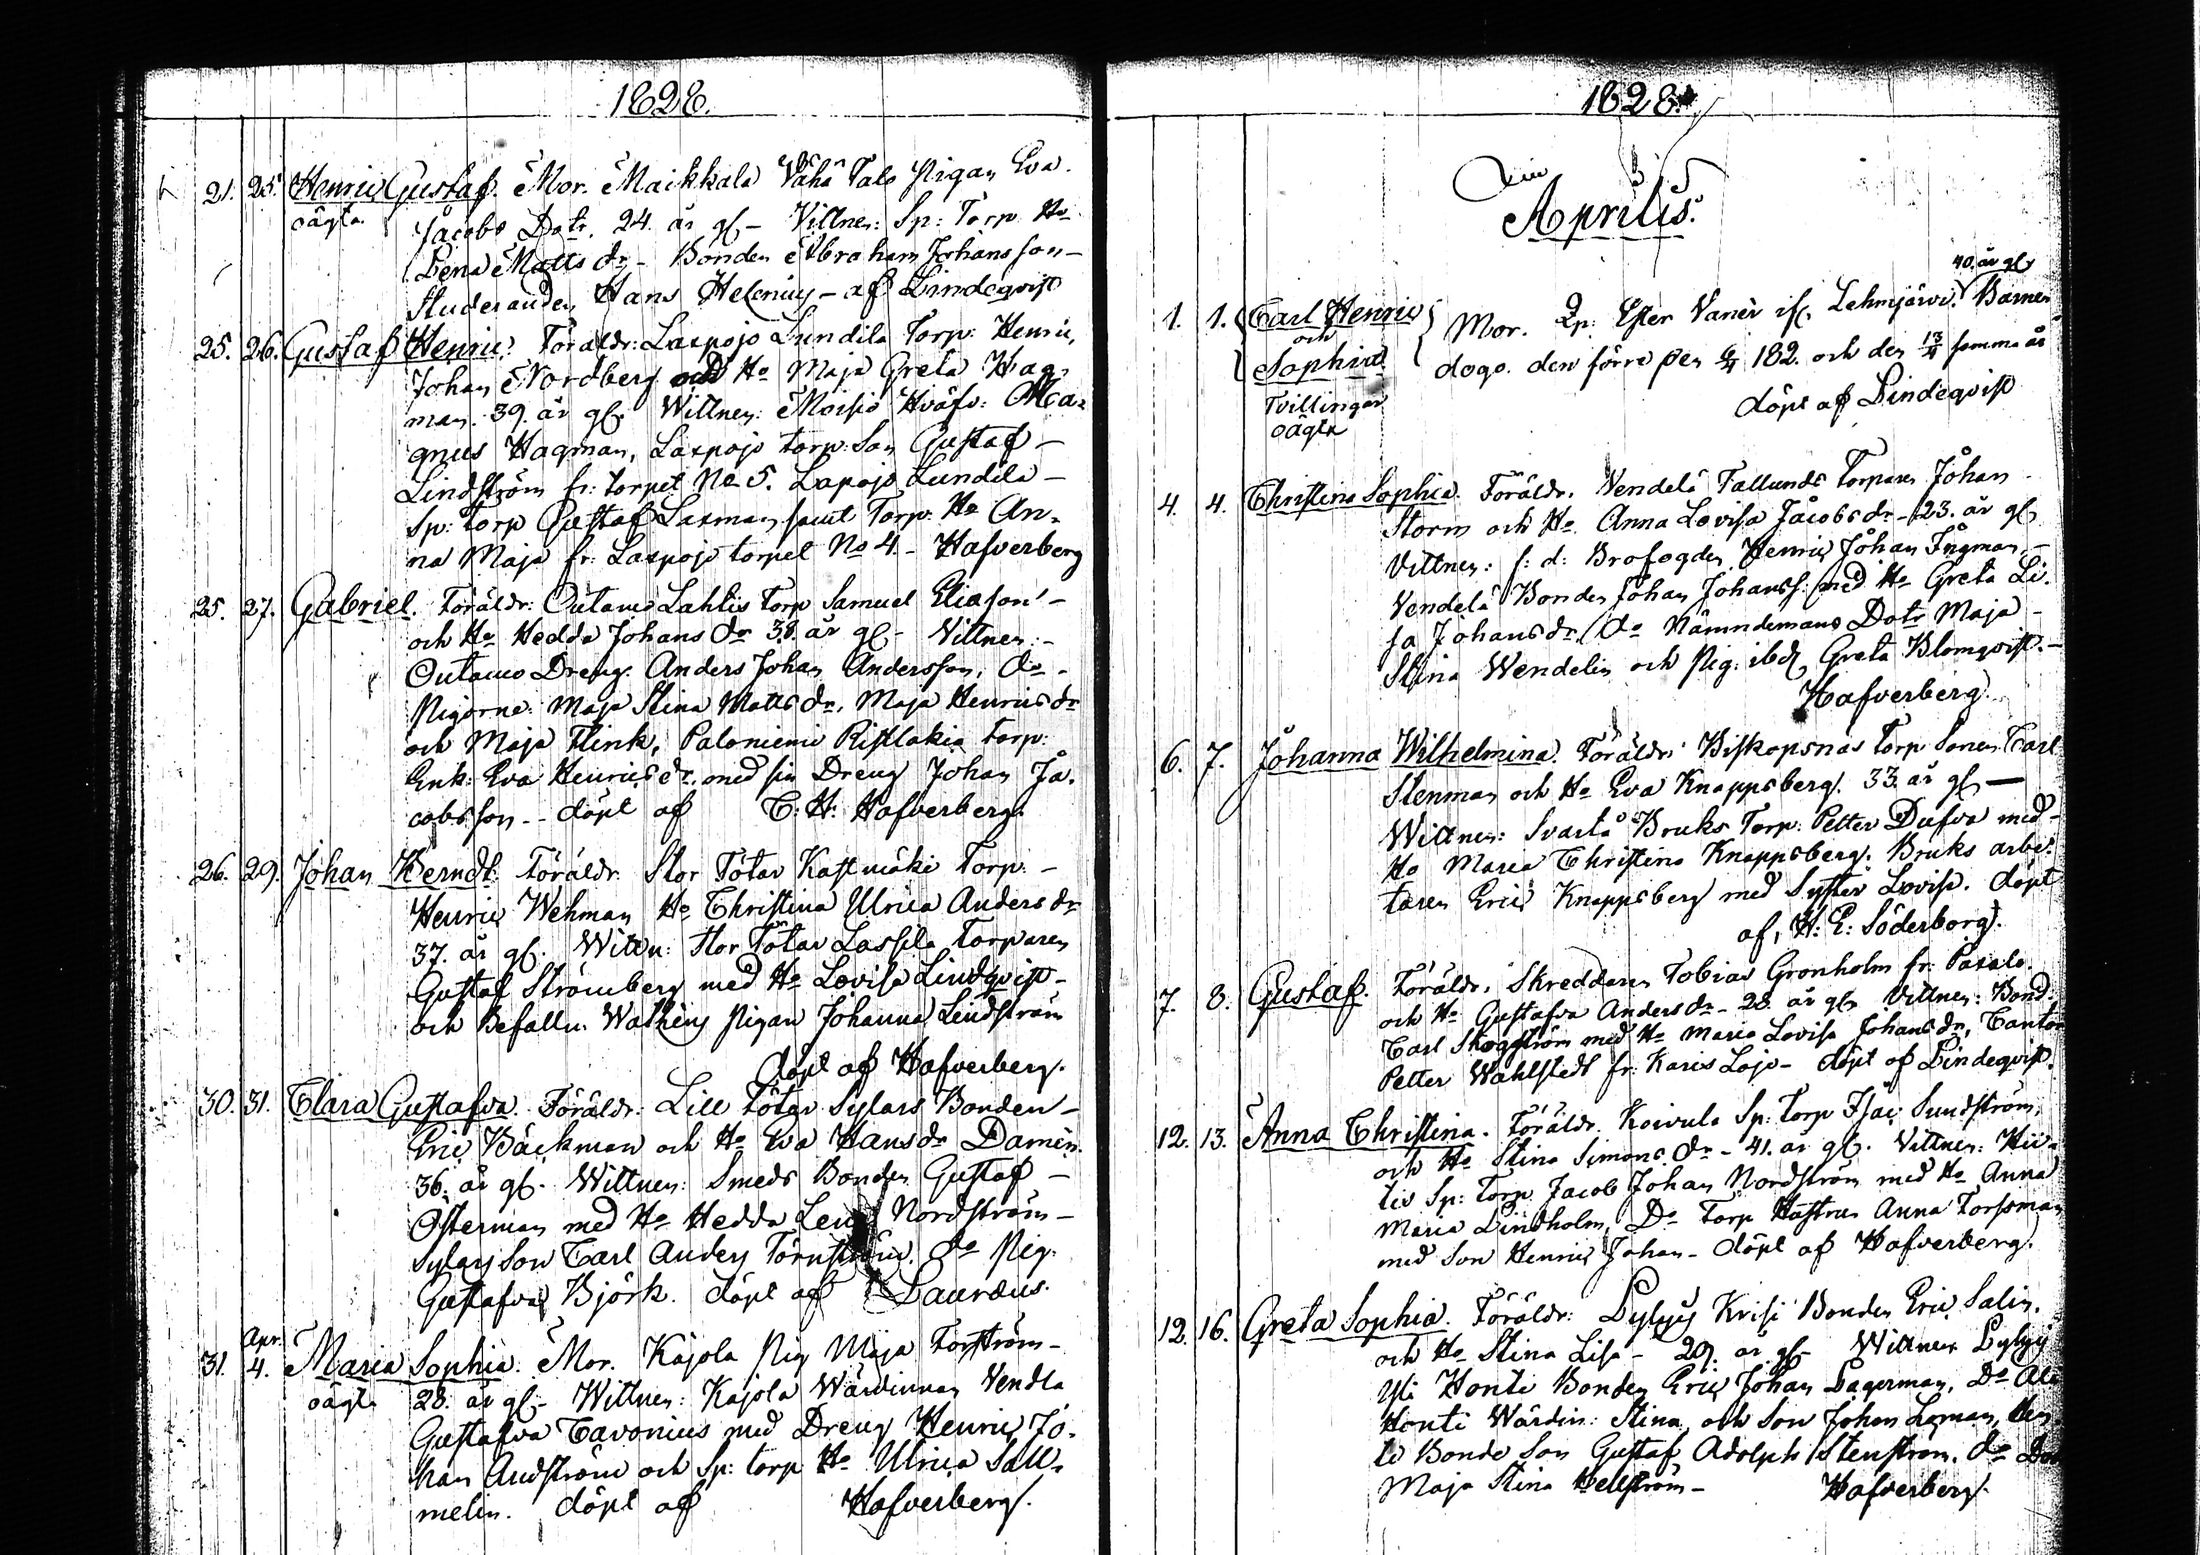 1828.
21. 25. Henric Gustaf. Mor. Maikkala Vähä Talo Pigan Eva
oägta Jacobs Dotr. 24. år gl. – Vittnen: Sp: Torp. Ho
Lena Matts dr – Bonden Abraham Johansson –
Studeranden Hans Helenius – af Lindeqvist
25. 26. Gustaf Henric. Föräldr: Laxpojo Lundila Torp: Henric
Johan Nordberg och Ho Maja Greta Hag-
man. 39. år gl. Wittnen: Moisio Ma-
gnus Hagman, Laxpojo torp. Son Gustaf –
Lindström fr: torpet No 5. Laxpojo Lundila –
Sp: torp Gustaf Laxman samt Torp. Ho An-
na Maja fr. Laxpojo torpet No 4. – Hafverberg
25. 27. Gabriel. Föräldr: Outamo Lahtis Torp Samuel Eliason –
och Ho Hedda Johans dr 38. år gl – Vittnen: –
Outamo Dreng. Anders Johan Andersson, do –
Pigorne: Maja Stina Matts dr, Maja Henrics dr
och Maja Flink, Paloniemi Ristlakia torp:
Enk: Eva Henrics dr. med sin Dreng Johan Ja-
cobsson – döpt af C: H: Hafverberg.
26. 29. Johan Berndt. Föräldr. Stor Tötar Kastmäki Torp. –
Henric Wehman Ho Christina Ulrica Anders dr
37. år gl. Wittn: Stor Tötar Lassila Torparen
Gustaf Strömberg med Ho Lovisa Lindqvist –
och Befalln. Pigan Johanna Lindström
döpt af Hafverberg.
30. 31. Clara Gustafva. Föräldr: Lill Tötar Sylars Bonden –
Eric Bäckman och Ho Eva Hans dr Damén.
36. år gl. Wittnen: Smeds Bonden Gustaf –
Österman med Ho Hedda Lena Nordström –
Sylars Son Carl Anders Törnström. do Pig.
Gustafva Björk. döpt af Lauræus.
Apr.
31. 4. Maria Sophia. Mor. Kajola Pig Maja Forsström –
oägta 28. år gl – Wittnen: Kajola Wärdinnan Vendla
Gustafva Cavonius med Dreng Henric Jo-
han Andström och Sp: torp Ho Ulrica Sall-
melin. döpt af Hafverberg.
1828.
Aprilis.
40. år gl
1. 1. Carl Henric Mor. Qp: Ester Vanér Lehmjärvi. Barnen
och
Sophia dogo. den förre den 6/4 182. och den 13/4 samma år
Tvillingar döpt af Lindeqvist
oägta
4. 4. Christina Sophia. Föräldr. Vendelä Tallunds Torparen Johan
Storm och Ho Anna Lovisa Jacobs dr – 23. år gl
Vittnen: f: d: Brofogden Henric Johan Ingman –
Vendelä Bonden Johan Johanss: med Ho Greta Li-
sa Johans dr. do Nämndemans Dotr Maja –
Stina Wendelin och Pig: ibd, Greta Blomqvist. –
Hafverberg.
6. 7. Johanna Wilhelmina. Föräldr: Biskopsnäs Torp Sonen Carl
Stenman och Ho Eva Knappsberg. 33. år gl –
Wittnen: Svartå Bruks Torp: Petter Dufva med –
Ho Maria Christina Knappsberg. Bruks arbe-
taren Eric Knappsberg med Syster Lovisa. döpt
af, H: E: Söderborg.
7. 8. Gustaf. Föräldr. Skreddaren Tobias Grönholm fr: Paxalo
och Ho Gustafva Anders dr – 28. år gl. Vittnen: Bond.
Carl Skogström med Ho Maria Lovisa Johans dr, Cantor
Petter Wahlstedt fr: Karis Lojo – döpt af Lindeqvist.
12. 13. Anna Christina. Föräldr. Koivula Sp: Torp Isac Sundström,
och Ho Stina Simons dr – 41. år gl. Vittnen: Hii-
tis Sp: Torp. Jacob Johan Nordström med Ho Anna
Maria Lindholm, Do Torp Hustrun Anna Torpsman
med Son Henric Johan – döpt af Hafverberg.
12. 16. Greta Sophia. Föräldr: Lylyis Krisi Bonden Eric Salin.
och Ho Stina Lisa – 29. år gl – Wittnen Lylyis
Yli Honti Bonden Eric Johan Lagerman, Do Ala
Honti Wärdin: Stina och Son Johan Laman,
Bonde Son Gustaf Adolph Stenström, do Dotr
Maja Stina Hellström – Hafverberg.